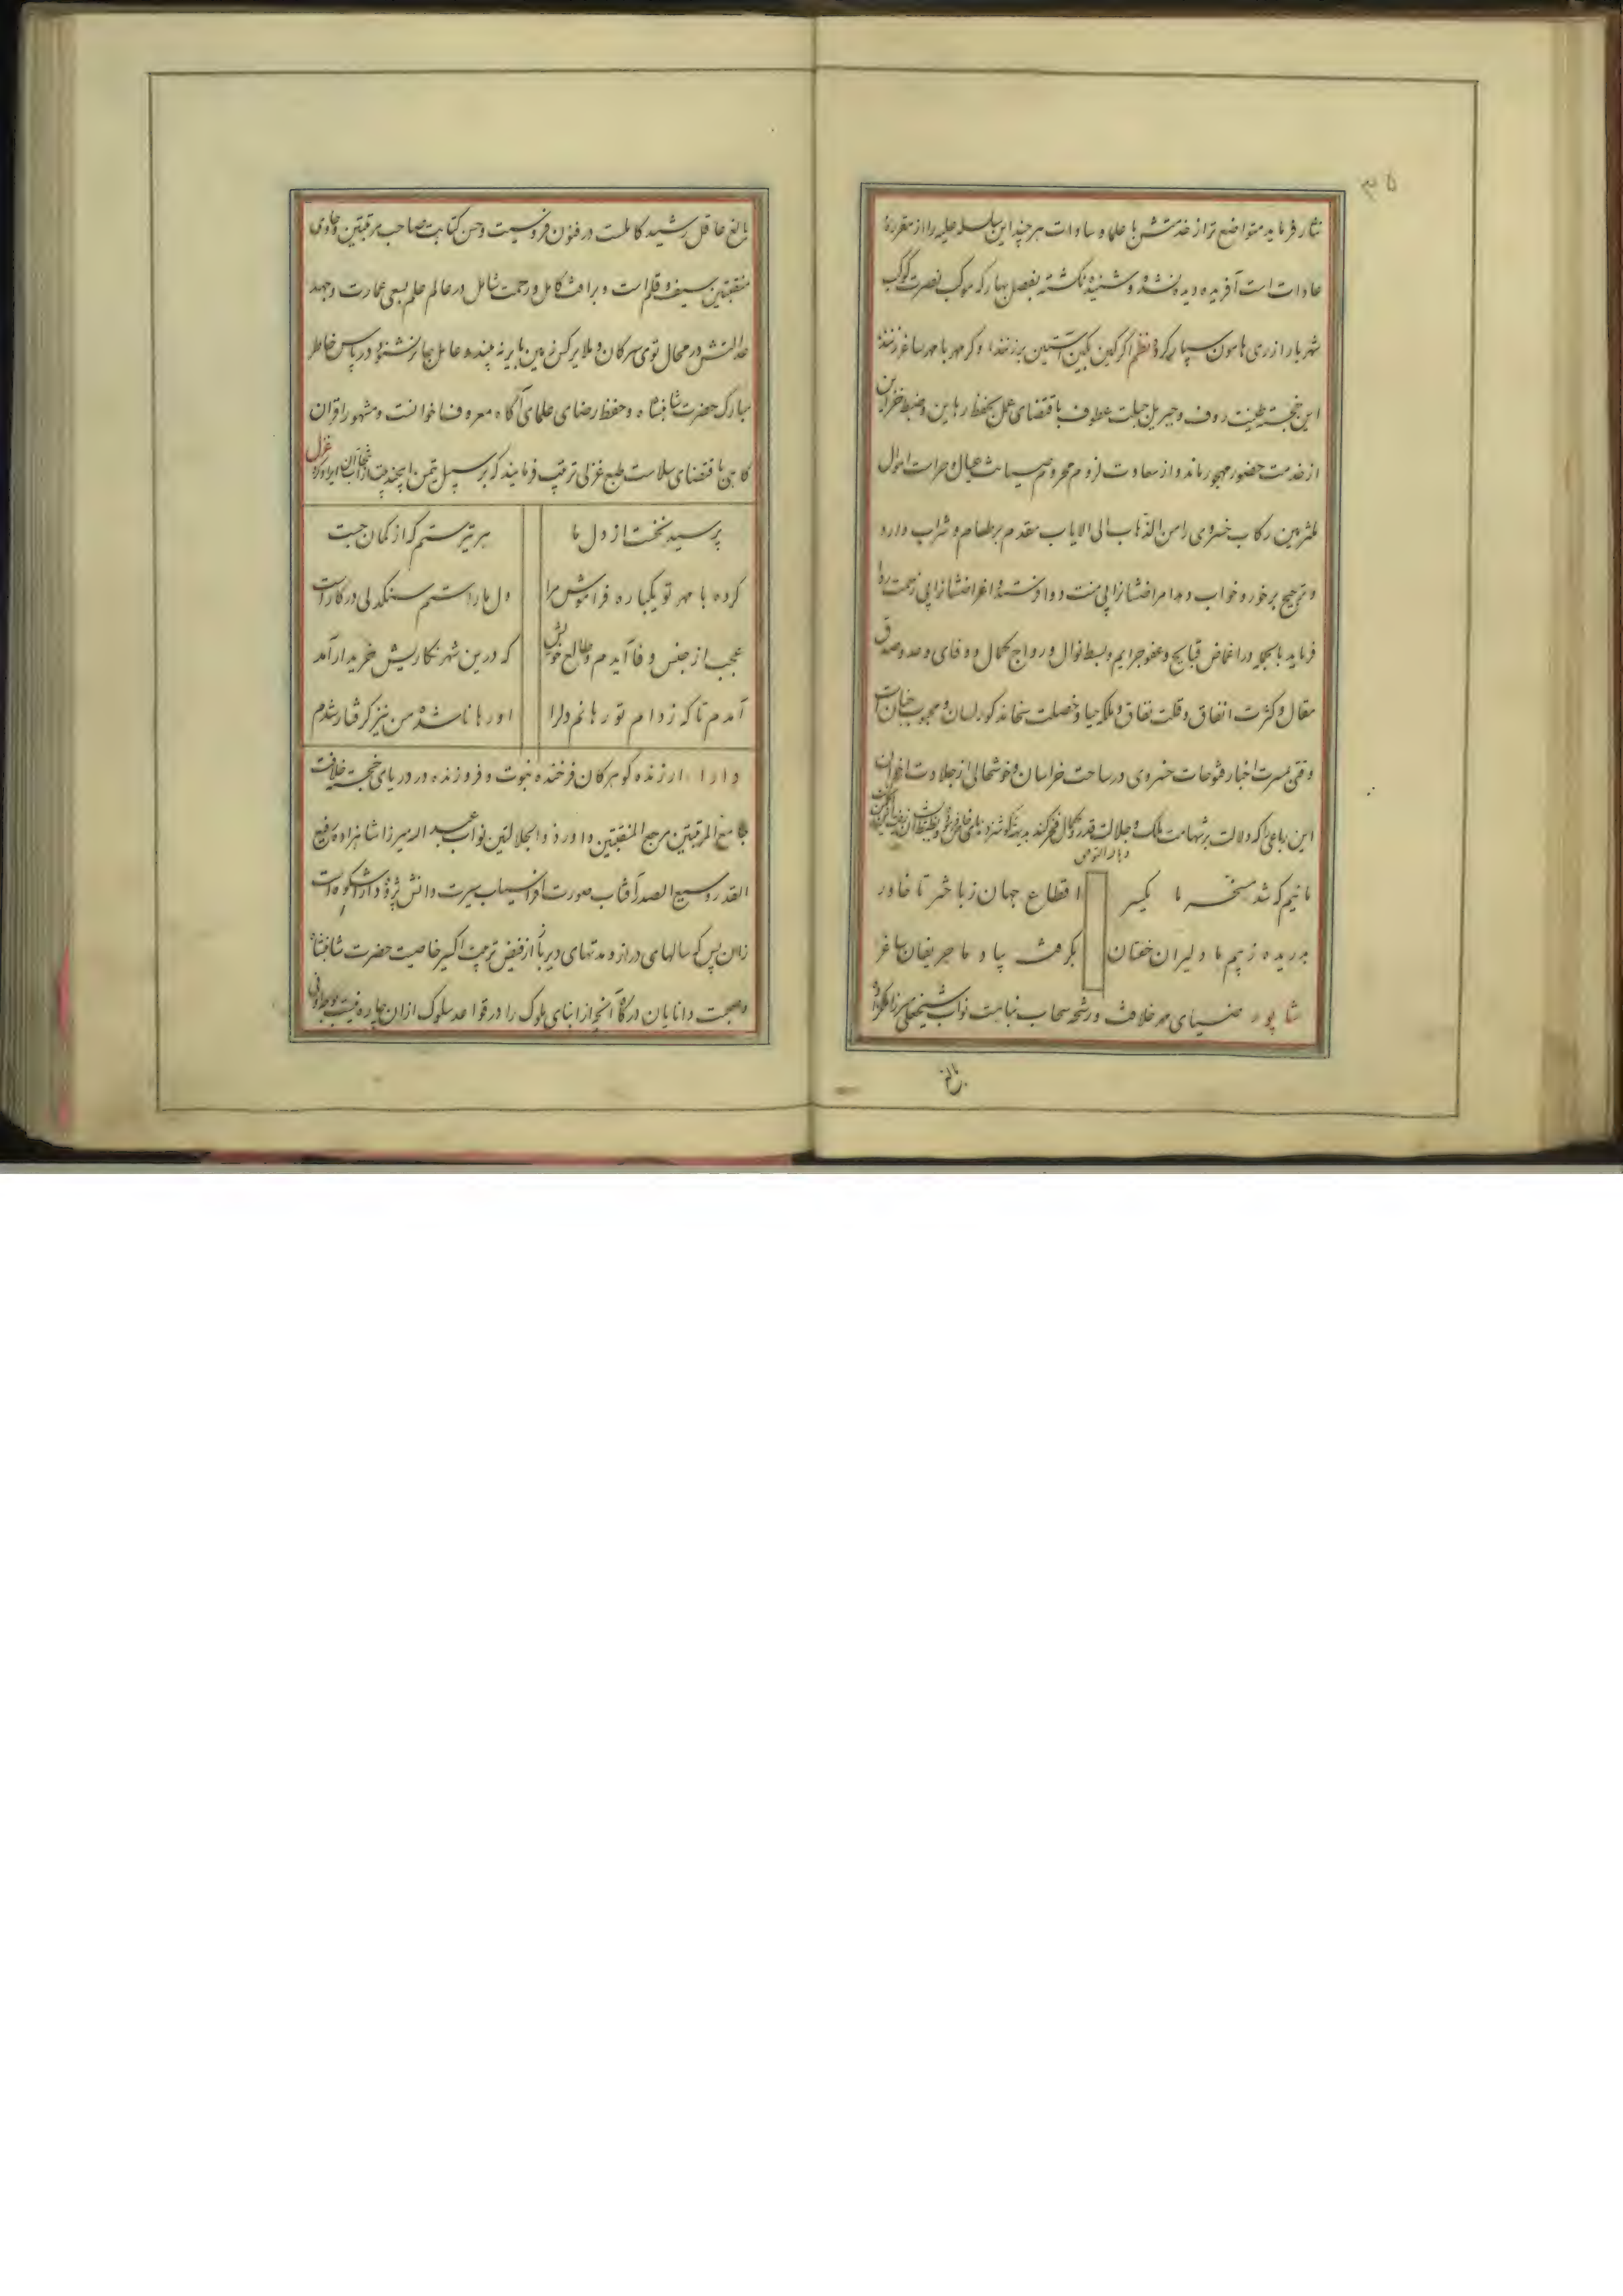 نثار فرماید متواضع تر از خدمتش با علما و سادات هر چند این سلسله علیه را از مقرره
عادات است آفریده دیده نشده و شنیده نکشته بفصل بهار که موکب نصرت کوکب
شهریار از ری هامون سپار کردد نظم اکر کین بکین آستین برزنند و کر مهر با مهر ساغر زنند
این خجسته طینت رؤف و جبریل جبلت عطوف باقتضای عمل بحفظ رهاین و ضبط خزاین
از خدمت حضور مهجور ماند و از سعادت لزوم محروم صیانت عیال و حراست اموال
ملتزمین رکاب خسروی را من الذهاب الی الایاب مقدم بر طعام و شراب دارد
و ترجیح بر خور و خواب دهد امراضشانرا بی منت دوا فرستد و اغراضشانرا بی زحمت روا
فرماید بالجمله در اغماض قبایح و عفو جرایم و بسط نوال و رواج کمال و وفای وعد و صدق
مقال و کثرت اتفاق و قلت نفاق و ملکه حیا و خصلت سخا مذکور لسان و محبوب جنان است
وقتی بمسرت اخبار فتوحات خسروی در ساحت خراسان و خوشحالی از جلادت اخوان
این رباعی را که دلالت بر شهامت ملک و جلالت قدر و کمال فخر کند بدیهة کوشزد
مائیم که شد مسخر ما یکسر اقطاع جهان ز باختر تا خاور
بدریده ز بیم ما دلیران خفتان بگرفته بیاد ما حریفان ساغر
شاپور ضیای مهر خلافت و رشحه سحاب نیابت نواب شیخعلی میرزا ملکزاده
بالغ
بالغ عاقل رشید کاملست در فنون فروسیت و حسن کتابت صاحب مرتبتین و حاوی
منقبتین سیف و قلم است و برافت کامل و رحمت شامل در عالم علم بسعی عمارت و جهد
عدالتش در محال توی سرکان و ملایر کس زمین بایر نه بیند و عامل جائر نشنود در پاس خاطر
مبارک حضرت شاهنشاه و حفظ رضای علمای آکاه معروف اخوانست و مشهور اقران
کاهی باقتضای سلامت طبع غزلی ترتیب فرمایند که بر سبیل تیمن این چند بیت از آن ایراد کرد غزل
پرسید نخست از دل ما هر تیر ستم که از کمان جست
کرده با مهر تو یکباره فراموش مرا دل ما را ستم سنکدلی در کار است
عجب از جنس وفا آیدم و طالع خویش که درین شهر نکاریش خریدار آمد
آمدم تا که ز دام تو رهانم دل را او رها ناشده من نیز کرفتار شدم
دارا ارزنده کوهر کان فرخنده نبوت و فروزنده در دریای خجسته خلافت
جامع المرتبتین مرجع المنقبتین داور ذو الجلالتین نواب عبد الله میرزا شاهزاده رفیع
القدر وسیع الصدر آفتاب صورت افراسیاب سیرت دانش پژوه دارا شکوه است
زان پس که سالهای دراز و مدتهای دیرباز از فیض تربیت اکسیر خاصیت حضرت شاهنشاه
و صحبت دانایان درکاه آنچه از ابنای ملوک را در قواعد سلوک از آن چاره نیست